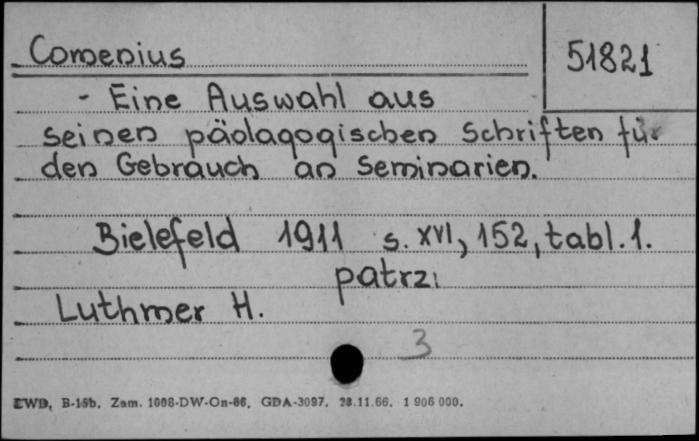 Comenius
51821
- Eine Auswahl aus
seinen pädagogischen Schriften für
den Gebrauch an Seminarien.
Bielefeld 1911 s. XVI, 152, tabl. 1.
patrz:
Luthmer H.
3
EWD, B-15b. Zam. 1008-DW-On-66, GDA-3097. 28.11.66. 1 906 000.